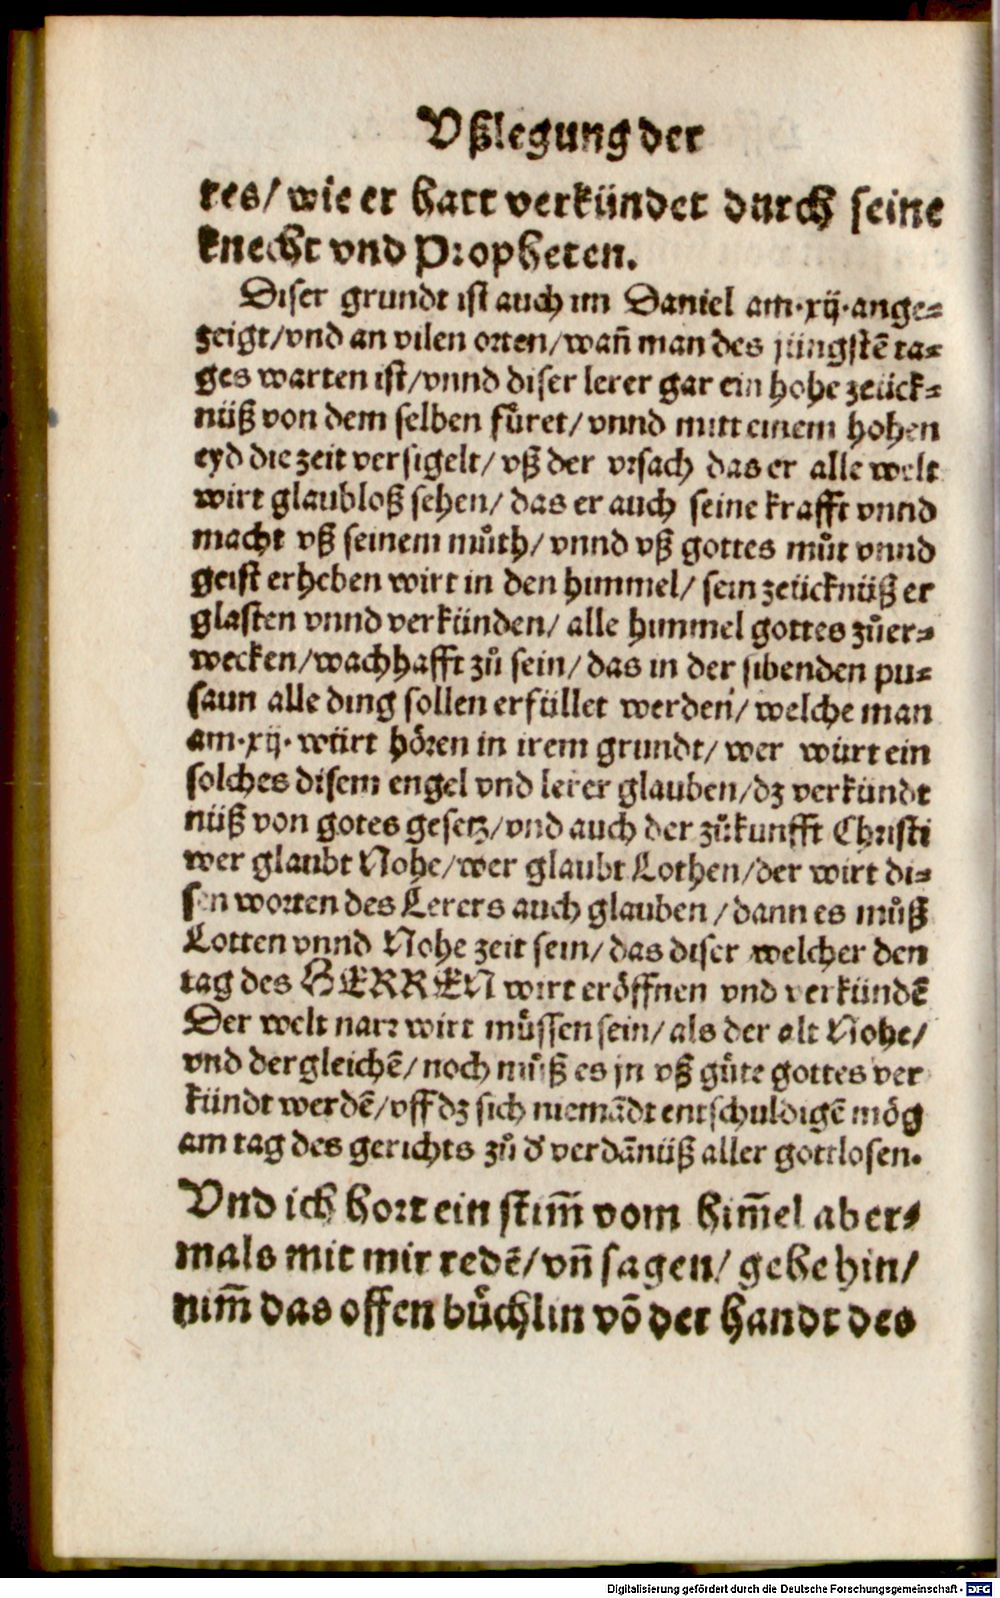 Vßlegung der
tes/ wie er hatt verkündet durch seine
knecht vnd Propheten.
Diser grundt ist auch im Daniel am·xij·ange⸗
zeigt/vnd an vilen orten/wañ man des jüngstẽ ta⸗
ges warten ist/vnnd diser lerer gar ein hohe zeück⸗
nüß von dem selben fůret/ vnnd mitt einem hohen
eyd die zeit versigelt/ vß der vrsach das er alle welt
wirt glaubloß sehen/ das er auch seine krafft vnnd
macht vß seinem můth/ vnnd vß gottes můt vnnd
geist erheben wirt in den himmel/ sein zeücknüß er
glasten vnnd verkünden/ alle himmel gottes zůer⸗
wecken/wachhafft zů sein/ das in der sibenden pu⸗
saun alle ding sollen erfüllet werden/ welche man
am·xij· würt hören in irem grundt/ wer würt ein
solches disem engel vnd lerer glauben/dz verkündt
nüß von gotes gesetz/vnd auch der zůkunfft Christi
wer glaubt Nohe/wer glaubt Lothen/der wirt di⸗
sen worten des Lerers auch glauben /dann es můß
Lotten vnnd Nohe zeit sein/ das diser welcher den
tag des HERREN wirt eröffnen vnd verkündẽ
Der welt narr wirt můssen sein/ als der alt Nohe/
vnd dergleichẽ/ noch můß es jn vß gůte gottes ver
kündt werdẽ/vff dz sich niemãdt entschuldigẽ mög
am tag des gerichts zů d' verdãnüß aller gottlosen.
Vnd ich hort ein stim̃ vom him̃el aber⸗
mals mit mir redẽ/vñ sagen/ gehe hin/
nim̃ das offen bůchlin võ der handt des
Digitalisierung gefördert durch die Deutsche Forschungsgemeinschaft - DFG